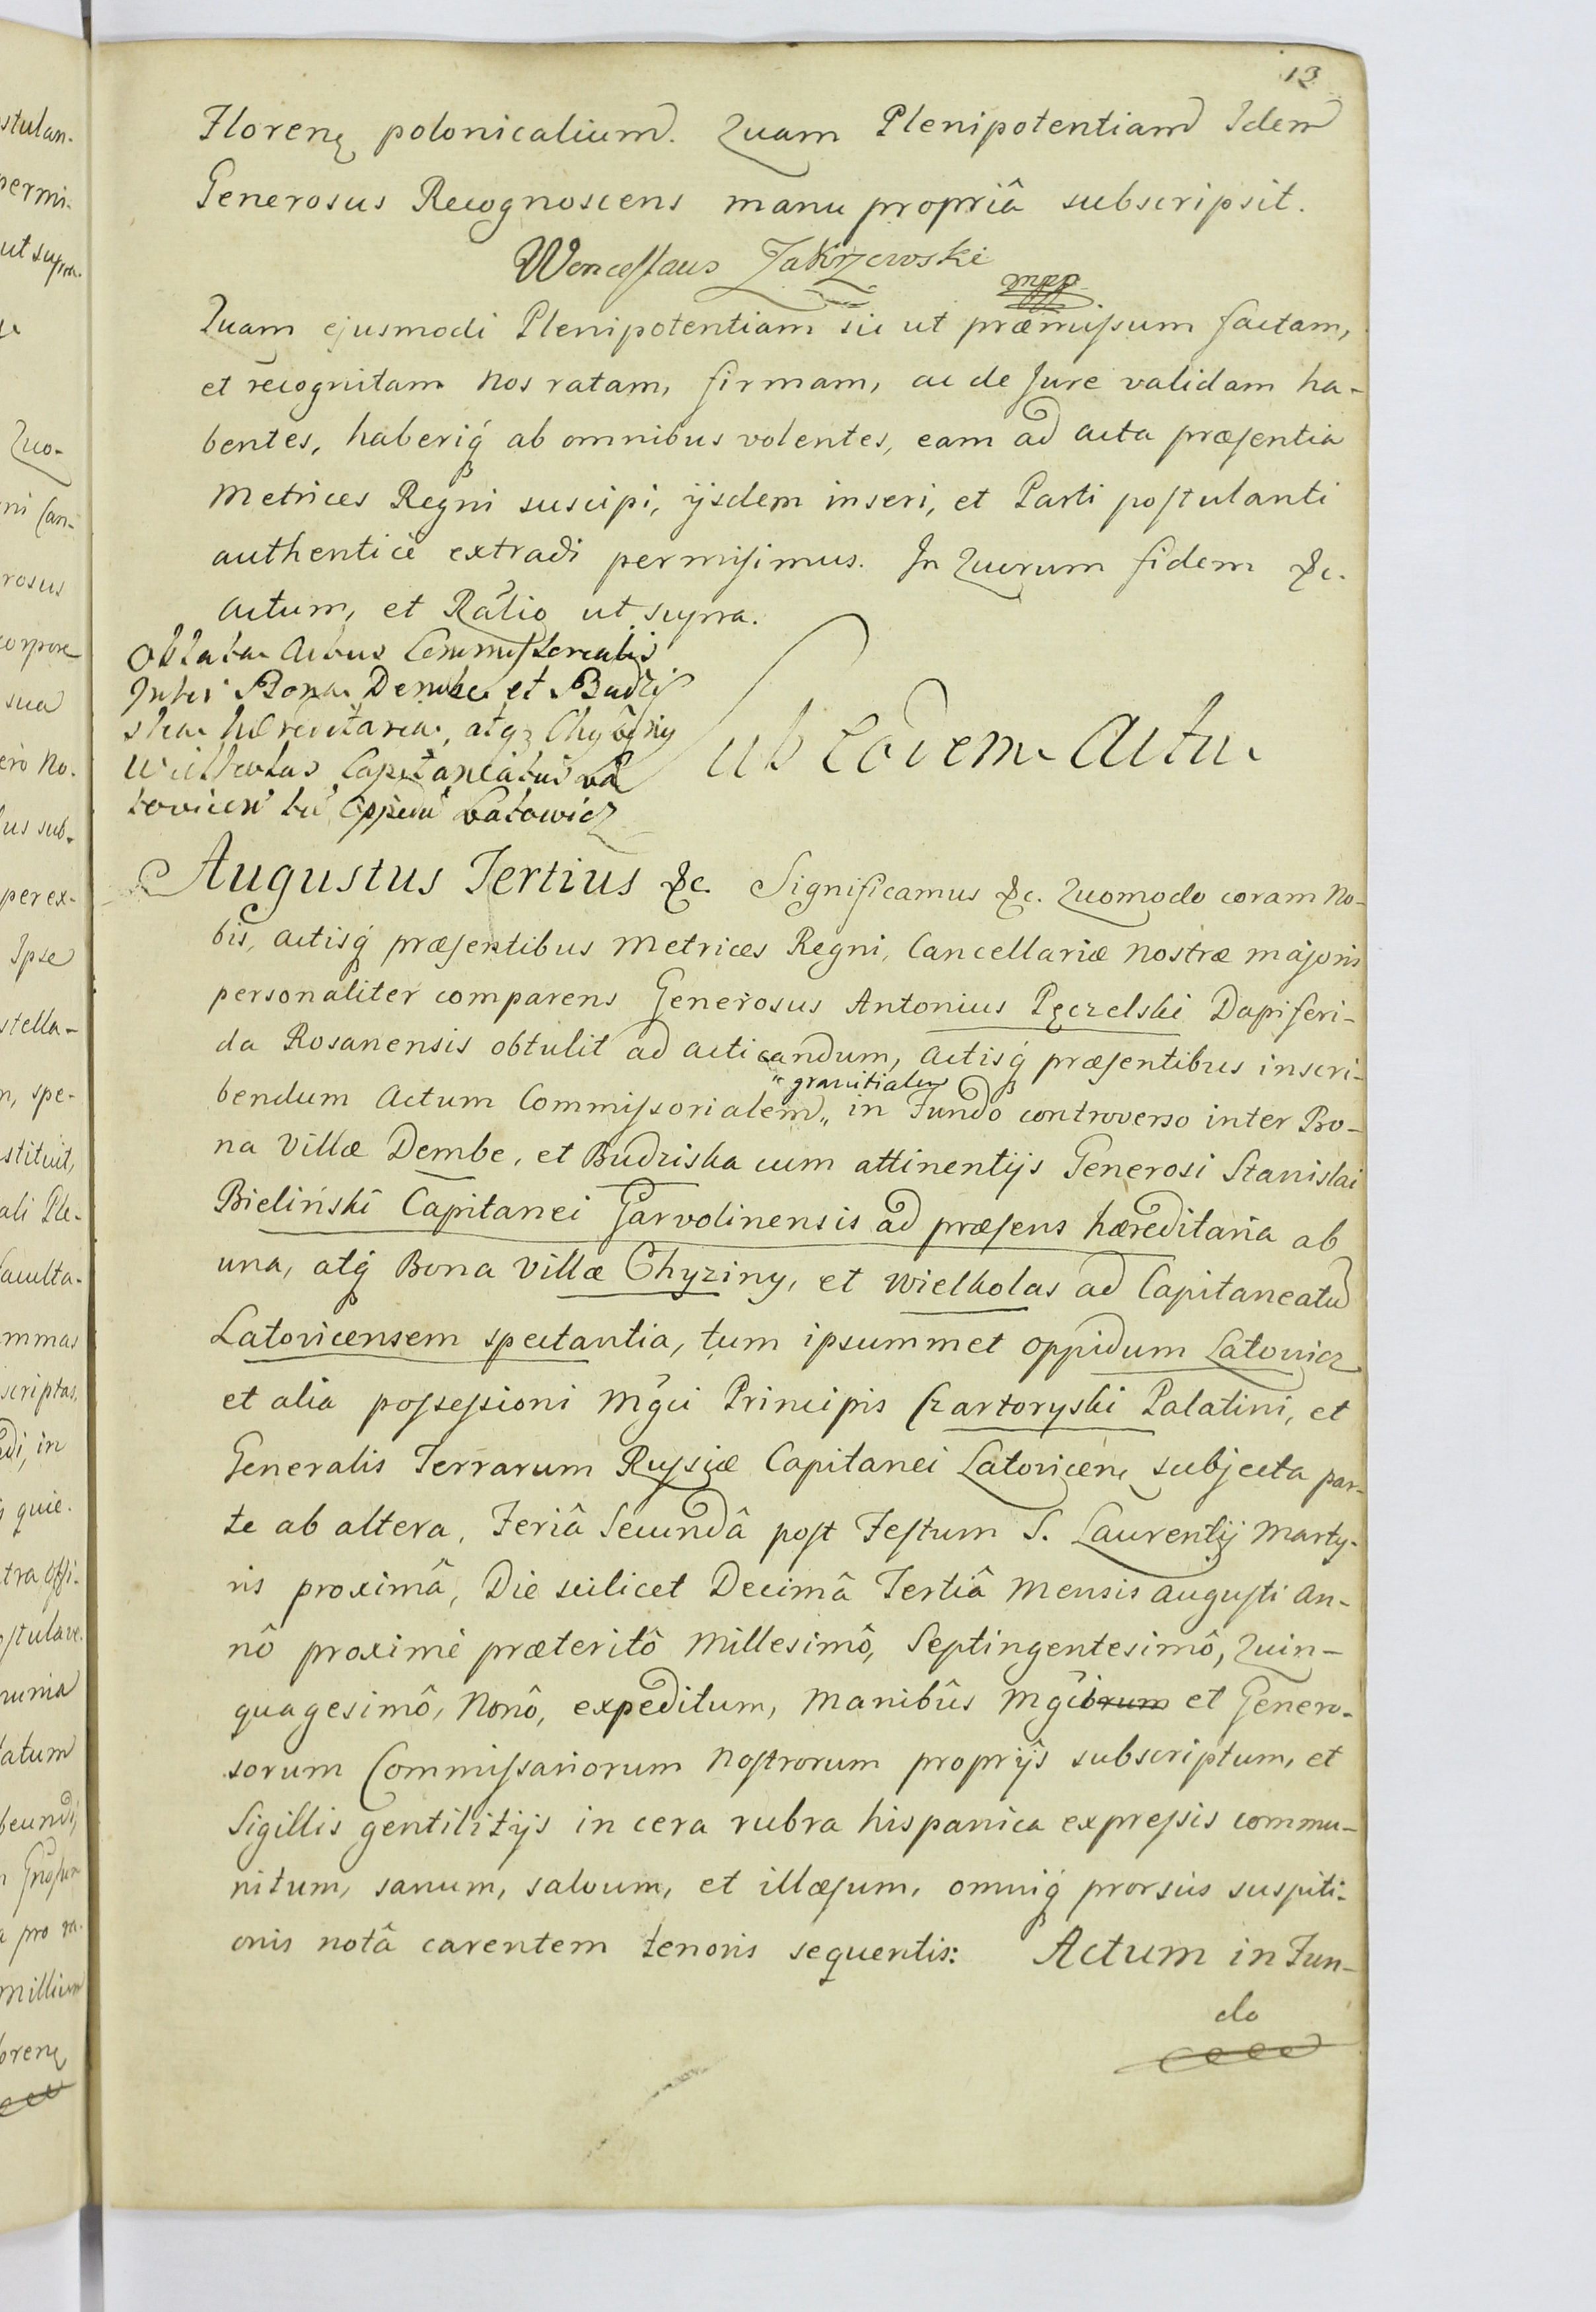 13
Floren polonicalium. Quam Plenipotentiam Idem
Generosus Recognoscens manu propriâ subscripsit.
Wenceslaus Zakrzewski
mpp
Quam ejusmodi Plenipotentiam sic ut præmissum factam,
et recognitam Nos ratam, firmam, ac de Jure validam ha-
bentes, haberiq́ ab omnibus volentes, eam ad acta præsentia
Metrices Regni suscipi, ijsdem inseri, et Parti postulanti
authenticè extradi permisimus. In Quorum fidem &c.
Actum, et Ratio ut supra.
Oblata Actus Commissorialis
Inter Bona Dembe et Budzi
ska hæreditaria, atq Chyżyny
Wielkolas Capitaneatus La
tovicen tū Oppidū Latowicz
Sub Eodem Actu
Augustus Tertius &c. Significamus &c. Quomodo coram No-
bis, actisq́ præsentibus Metrices Regni, Cancellariæ Nostræ majoris
personaliter comparens Generosus Antonius Pęczelski Dapiferi-
da Rosanensis obtulit ad acticandum, actisq́ præsentibus inscri-
bendum Actum Commissorialem „ in Fundo controverso inter Bo-
„ granitialem
na Villæ Dembe, et Budziska cum attinentijs Generosi Stanislai
Bielińskî Capitanei Garvolinensis ad præsens hæreditaria ab
una, atq́ Bona Villæ Chyziny, et Wielkolas ad Capitaneatū
Latovicensem spectantia, tum ipsummet oppidum Latowicz
et alia possessioni Mgci Principis Czartoryski Palatini, et
Generalis Terrarum Russiæ Capitanei Latovicen subjecta par-
te ab altera, Feriâ Secundâ post Festum S. Laurentij Marty-
ris proximâ, Die scilicet Decimâ Tertiâ Mensis Augusti An-
nô proximè præteritô Millesimô, Septingentesimô, Quin-
quagesimô, Nonô, expeditum, Manibûs Mgcibrum et Genero-
sorum Commissariorum Nostrorum proprijs subscriptum, et
Sigillis gentilitijs in cera rubra hispanica expressis commu-
nitum, sanum, salvum, et illæsum, omniq́ prorsùs suspiti-
onis notâ carentem tenoris sequentis: Actum in Fun-
do